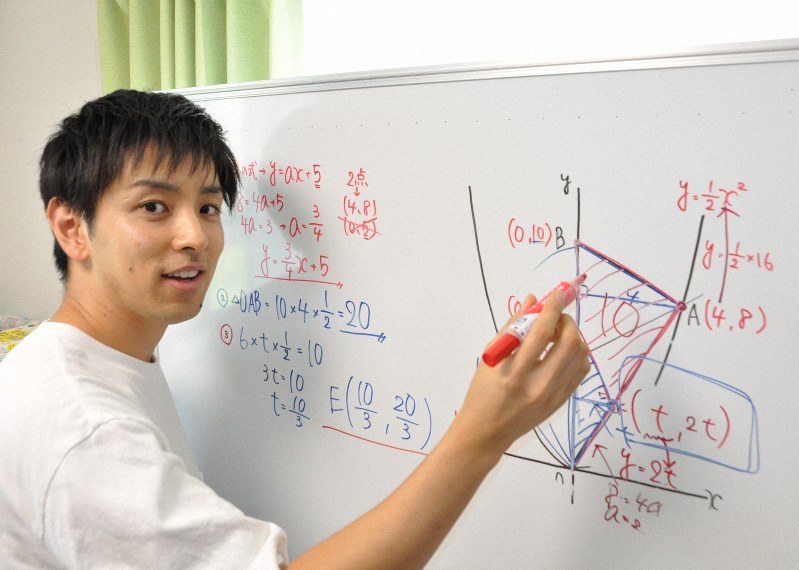 の式→y=ax+5
8=4a+5
4a=3→a=3/4
y=3/4x+5
2点
↓
(4,8)
(0,5)
② △OAB=10×4×1/2=20
③ 6×t×1/2=10
3t=10
t=10/3
E(10/3, 20/3)
y
y=1/2x²
(0,10) B
y=1/2×16
10
A(4,8)
E (t, 2t)
y=2t
8=4a
a=2
x